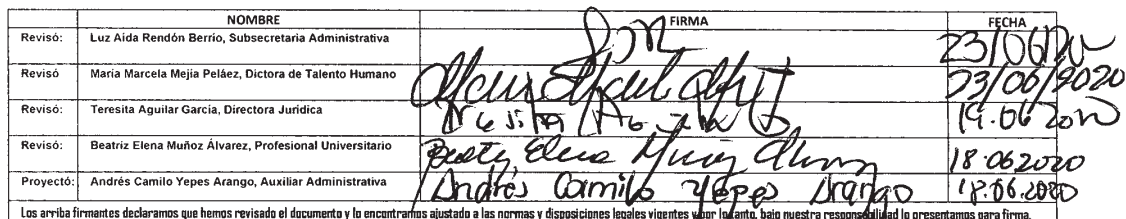 NOMBRE FIRMA FECHA
Revisó: Luz Aida Rendón Berrío, Subsecretaria Administrativa 23/06/20
Revisó María Marcela Mejía Peláez, Dictora de Talento Humano 23/06/2020
Revisó: Teresita Aguilar García, Directora Jurídica 19.06 2020
Revisó: Beatriz Elena Muñoz Álvarez, Profesional Universitario Beatriz Elena Muñoz Álvarez 18.06.2020
Proyectó: Andrés Camilo Yepes Arango, Auxiliar Administrativa Andrés Camilo Yepes Arango 18.06.2020
Los arriba firmantes declaramos que hemos revisado el documento y lo encontramos ajustado a las normas y disposiciones legales vigentes y por lo tanto, bajo nuestra responsabilidad lo presentamos para firma.